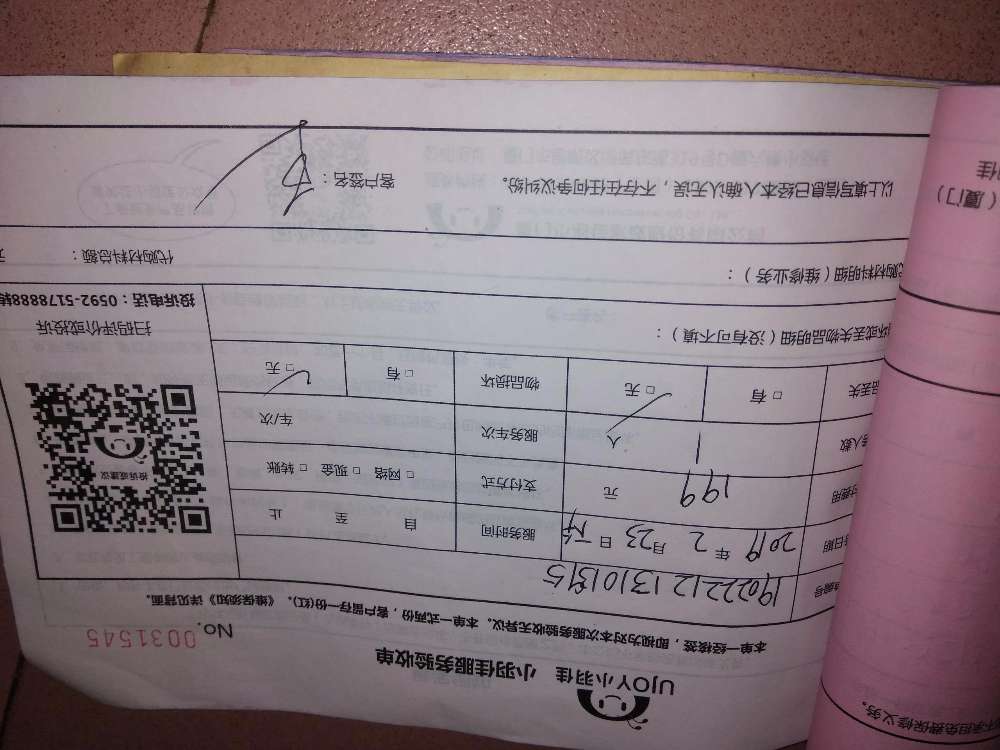 UJOY小羽佳 小羽佳服务验收单
No. 0031545
本单一经核签，即视为对本次服务验收无异议。本单一式两份，客户留存一份(红)。《维保须知》详见背面。
编号
日期 2019 年 2 月 23 日 服务时间 自 至 止
费用 199 元 支付方式 □ 网络 □ 现金 □ 转账
人数 1 人 服务车次 车/次
丢失 □ 有 □ 无 物品损坏 □ 有 □ 无
坏或丢失物品明细（没有可不填）：
投诉或建议
扫码评价或投诉
投诉电话：0592-5178888转
代购材料明细（维修业务）：
代购材料总额： 元
以上填写信息已经本人确认无误，不存在任何争议纠纷。 客户签名：
不承担免费保修义务。
（厦门）
佳